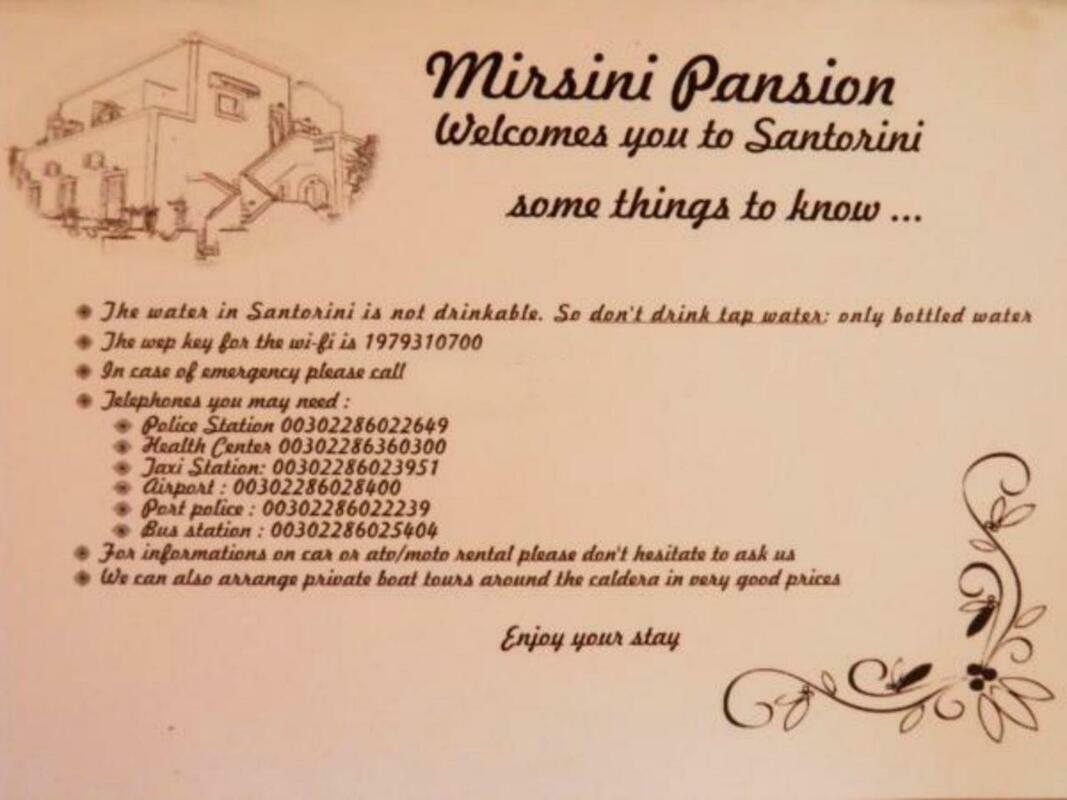 Mirsini Pansion
Welcomes you to Santorini
some things to know ...
The water in Santorini is not drinkable. So don't drink tap water; only bottled water
The wep key for the wi-fi is 1979310700
In case of emergency please call
Telephones you may need :
Police Station 00302286022649
Health Center 00302286360300
Taxi Station: 00302286023951
Airport : 00302286028400
Port police : 00302286022239
Bus station : 00302286025404
For informations on car or ato/moto rental please don't hesitate to ask us
We can also arrange private boat tours around the caldera in very good prices
Enjoy your stay